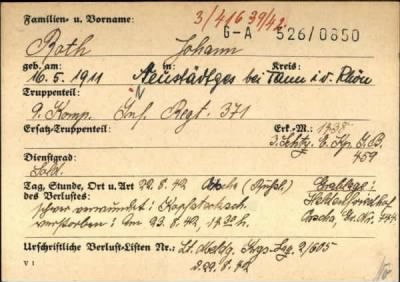 Familien- u. Vorname: 3/41639/42
G-A 526/0650
Both Johann
geb. am: in: Kreis:
16.5.1911 Neustädtges bei Tann i.d. Rhön
Truppenteil:
9. Komp. Inf. Regt. 371
Ersatz-Truppenteil: Erk.-M.: 1438
3. Schtz. E. Kp. I.B.
459
Dienstgrad:
Sold.
Tag, Stunde, Ort u. Art 22.8.42 (Rußl.) Grablage:
des Verlustes: Heldenfriedhof
schwer verwundet: Kopfstecksch.
verstorben: Am 23.8.42, Gr. Nr. 444
Urschriftliche Verlust-Listen Nr.: Lt. Meldg. Krgs. Laz. 2/605
v. 29.8.42
V 1